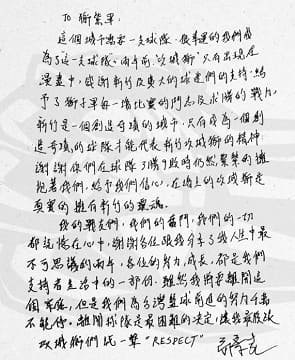 To 獅紫軍：
這個城市需要一支球隊，很幸運的我們成
為了這一支球隊。兩年前"攻城獅"只有出現在
漫畫中，感謝新竹及廣大的球迷們的支持，給
予了獅子軍每一場比賽的鬥志及求勝的戰力，
新竹是一個創造奇蹟的城市，只有成為一個創
造奇蹟的球隊才能代表新竹攻城獅的精神，
謝謝你們在球隊了勝了敗時仍然緊緊的擁
抱著我們，給予我們信心，在場上的攻城獅是
真實的擁有新竹的靈魂。
我的戰友們，我們的奮鬥，我們的一切
都記憶在心中，謝謝各位跟我分享了我人生中最
不可思議的兩年，各位的努力，成長，都是我們
支持者生活中的一部份，雖然我將要離開這
個 ，但是我們為台灣籃球前進的努力千萬
不能停。離開球隊是最困難的決定，讓我最後致
攻城獅們說一聲"RESPECT"